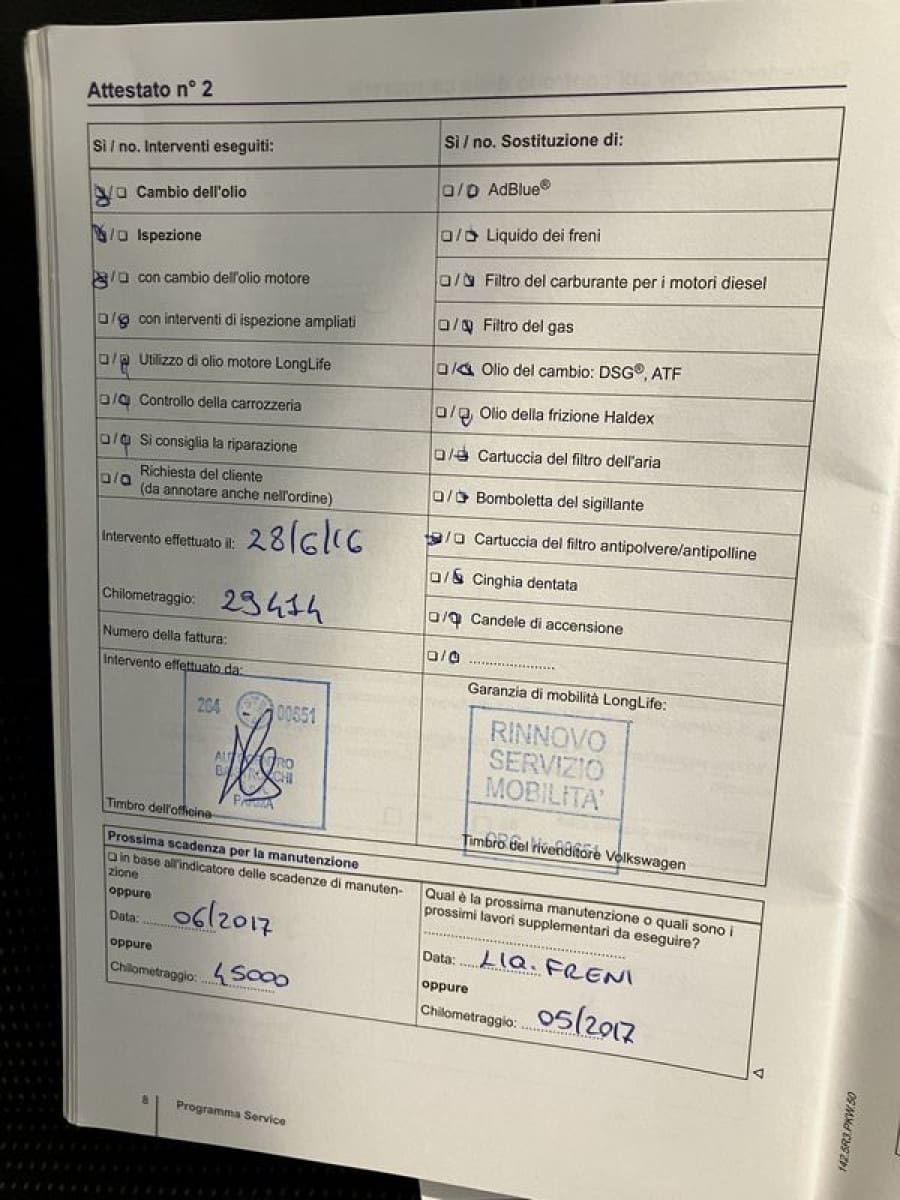 Attestato n° 2
Sì / no. Interventi eseguiti:
❑/❑ Cambio dell'olio
❑/❑ Ispezione
❑/❑ con cambio dell'olio motore
❑/❑ con interventi di ispezione ampliati
❑/❑ Utilizzo di olio motore LongLife
❑/❑ Controllo della carrozzeria
❑/❑ Si consiglia la riparazione
❑/❑ Richiesta del cliente
(da annotare anche nell'ordine)
Intervento effettuato il: 28/6/16
Chilometraggio: 29414
Numero della fattura:
Intervento effettuato da:
204 00651
PARMA
Timbro dell'officina
Sì / no. Sostituzione di:
❑/❑ AdBlue®
❑/❑ Liquido dei freni
❑/❑ Filtro del carburante per i motori diesel
❑/❑ Filtro del gas
❑/❑ Olio del cambio: DSG®, ATF
❑/❑ Olio della frizione Haldex
❑/❑ Cartuccia del filtro dell'aria
❑/❑ Bomboletta del sigillante
❑/❑ Cartuccia del filtro antipolvere/antipolline
❑/❑ Cinghia dentata
❑/❑ Candele di accensione
❑/❑ .....................
Garanzia di mobilità LongLife:
RINNOVO
SERVIZIO
MOBILITA'
Timbro del rivenditore Volkswagen
Prossima scadenza per la manutenzione
❑ in base all'indicatore delle scadenze di manuten-
zione
oppure
Data: 06/2017
oppure
Chilometraggio: 45000
Qual è la prossima manutenzione o quali sono i
prossimi lavori supplementari da eseguire?
Data: LIQ. FRENI
oppure
Chilometraggio: 05/2017
8 Programma Service
142.5R3.PKW.50